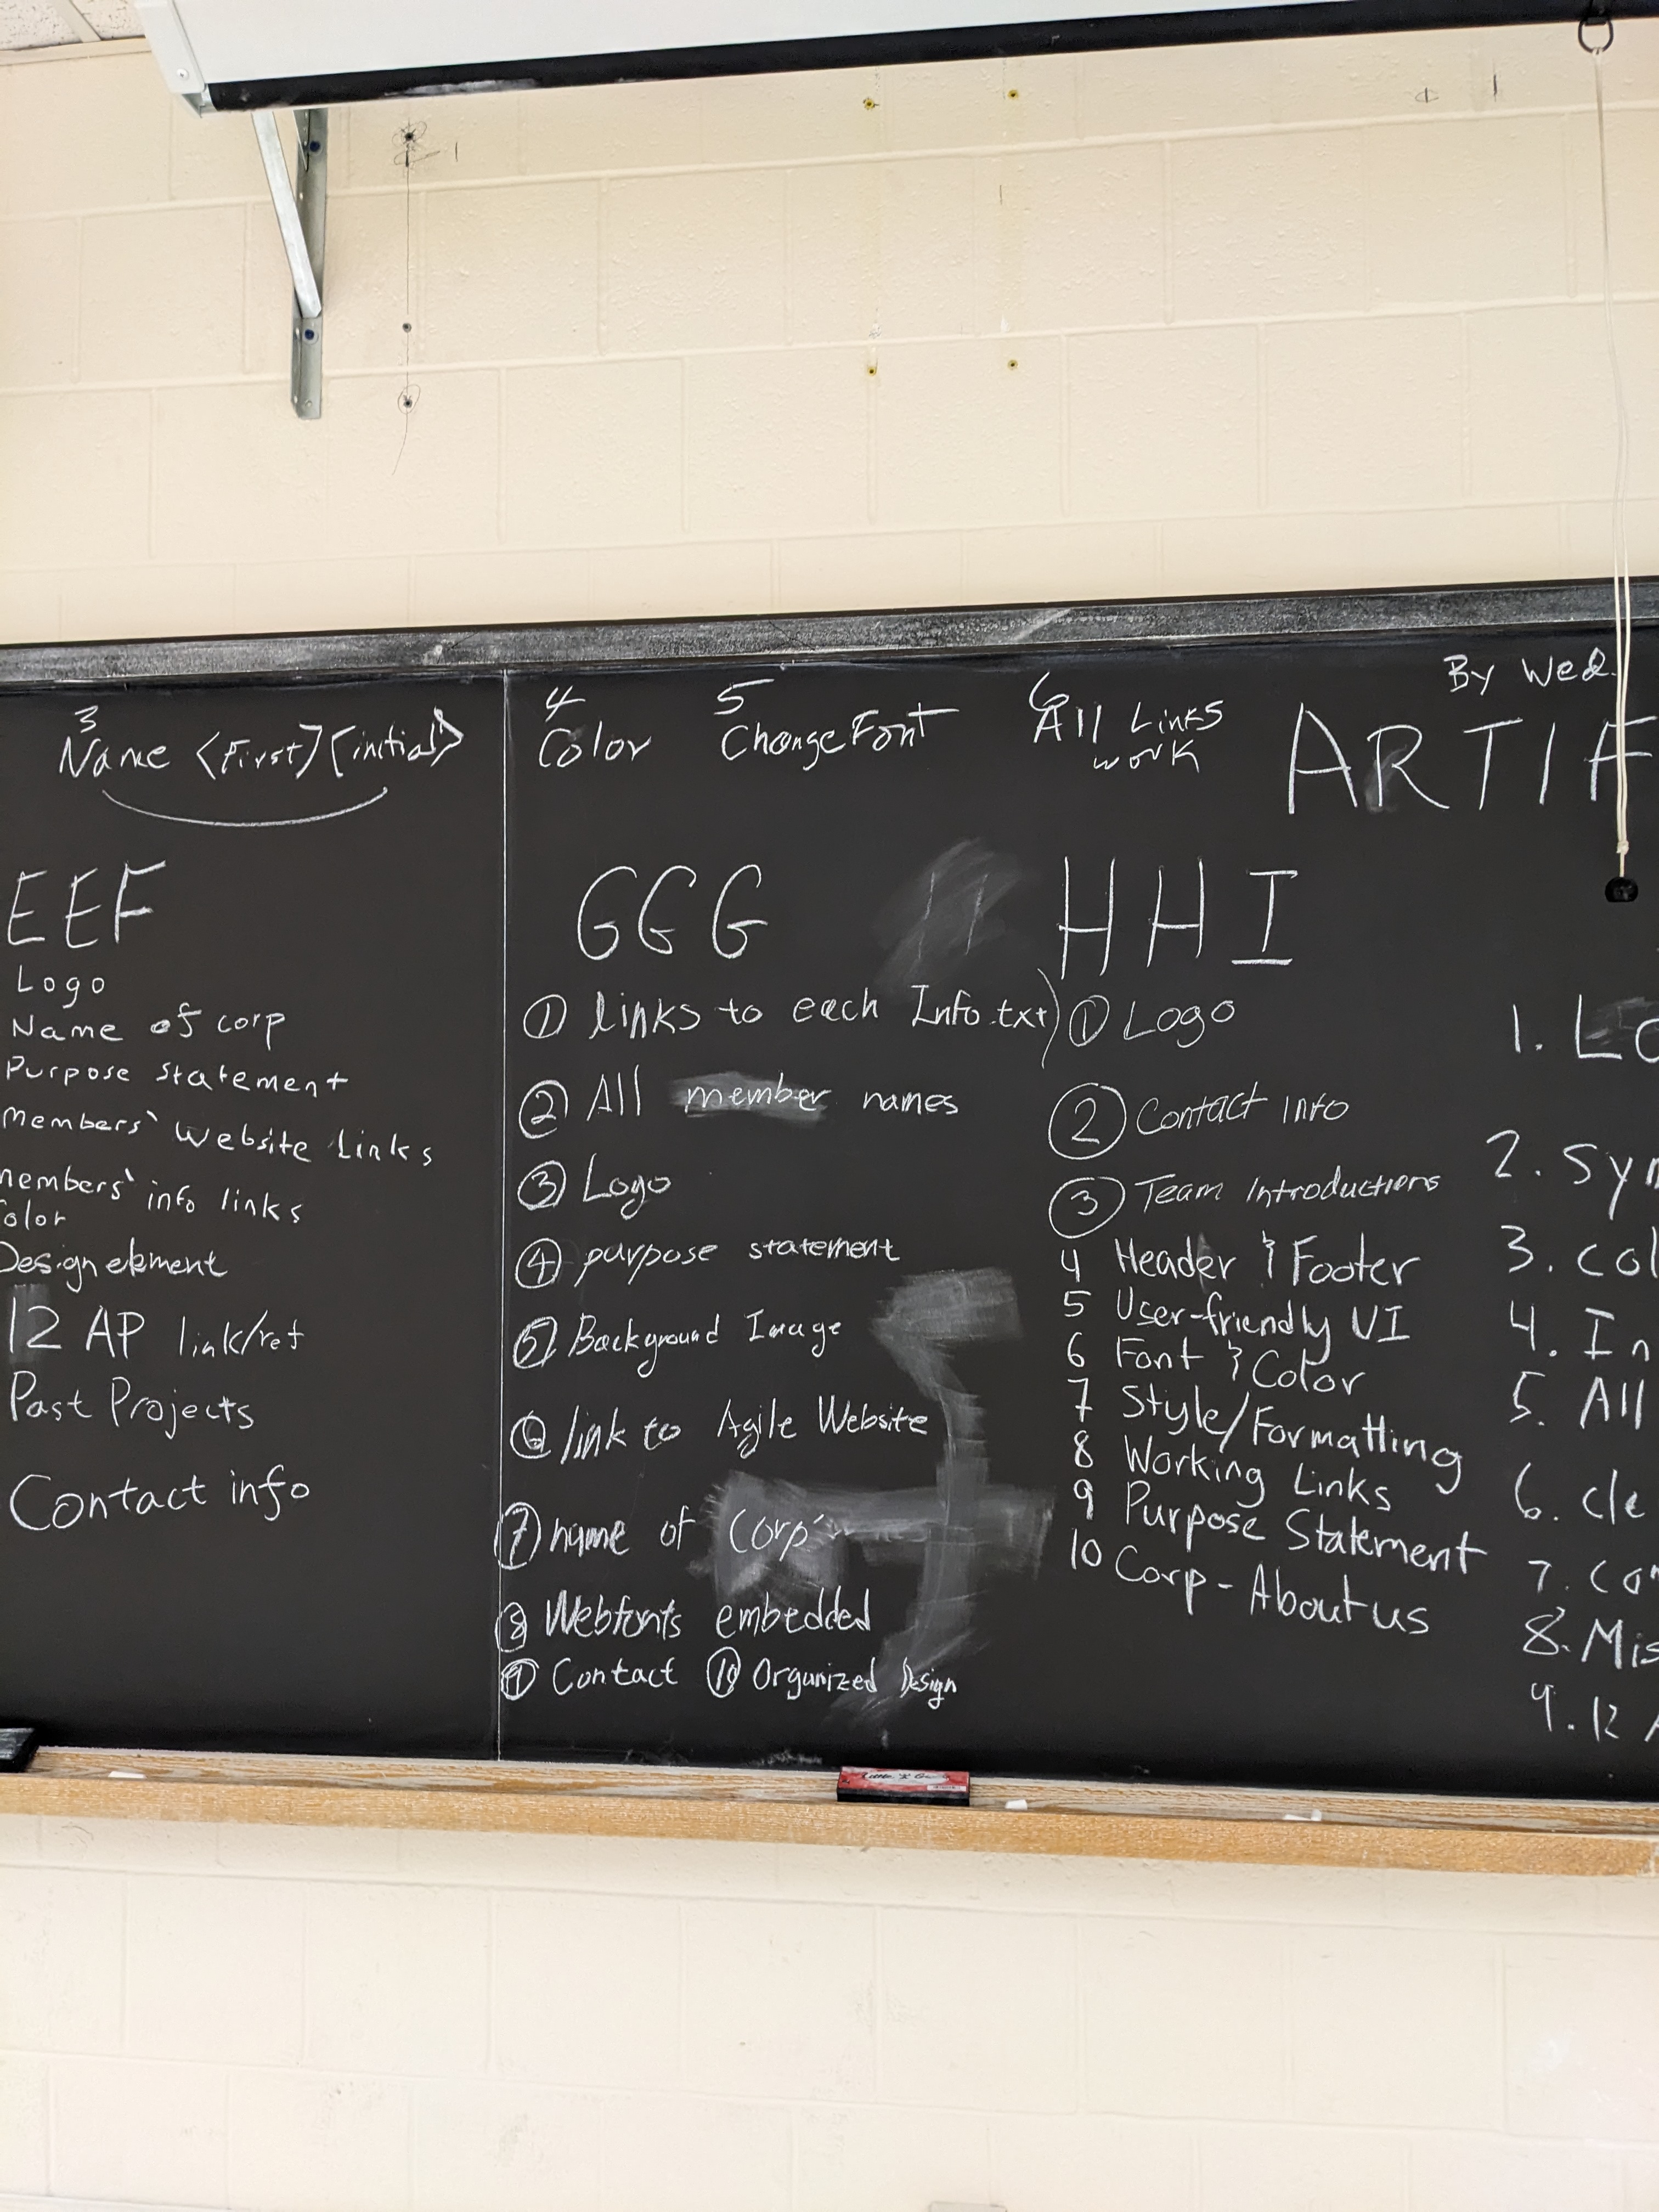 By Wed.
3
Name <First>[initial]>
4
Color
5
Change Font
6
All Links
work
ARTIF
EEF
Logo
Name of corp
Purpose Statement
members' Website Links
members' info links
Color
Design element
12 AP link/ref
Past Projects
Contact info
GGG
① links to each Info.txt)
② All member names
③ Logo
④ purpose statement
⑤ Background Image
⑥ link to Agile Website
⑦ name of Corp
⑧ Webfonts embedded
⑨ Contact ⑩ Organized Design
HHI
① Logo
② Contact Info
③ Team Introductions
4 Header & Footer
5 User-friendly UI
6 Font & Color
7 Style/Formatting
8 Working Links
9 Purpose Statement
10 Corp - About us
1. Lo
2. Sym
3. Col
4. In
5. All
6. cle
7. Con
8. Mis
9. 12 A